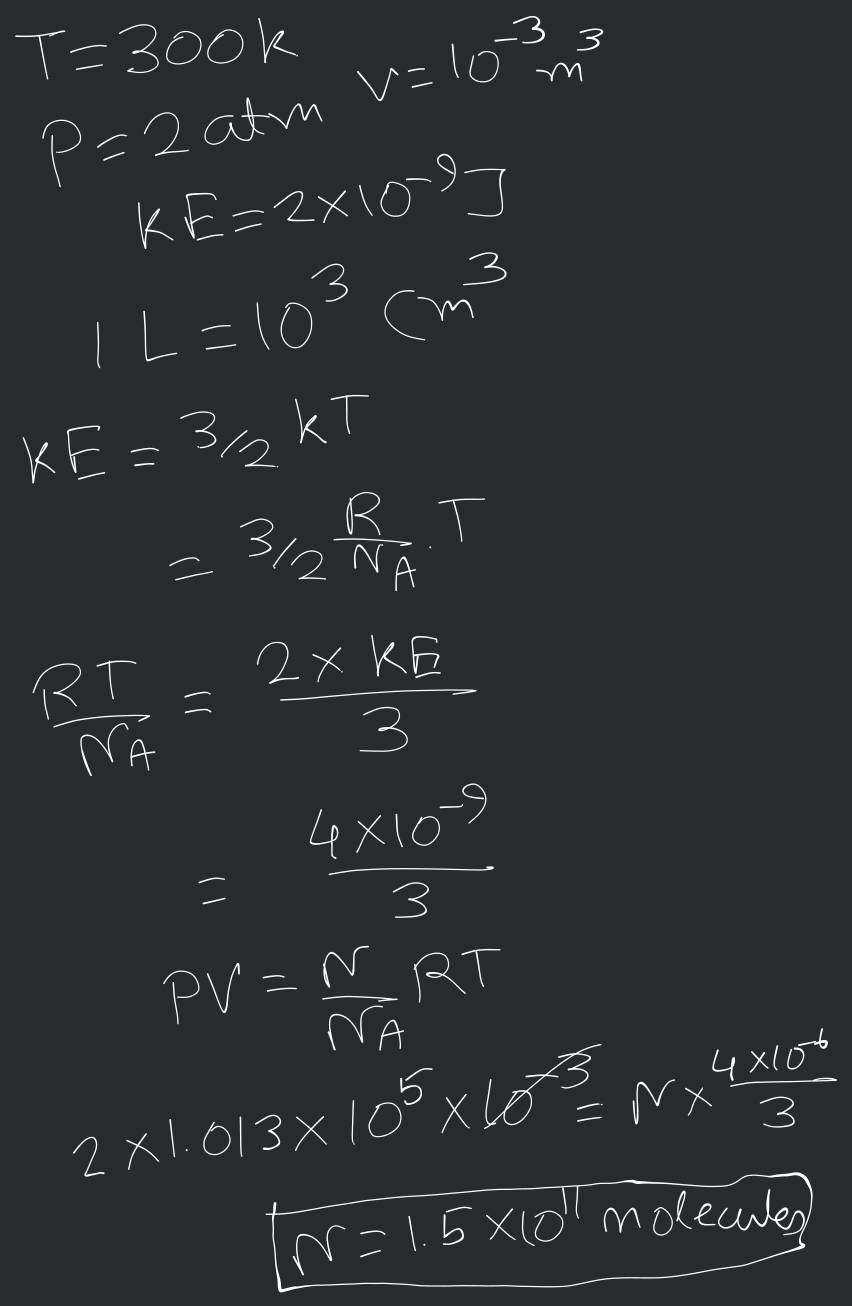 T=300k
V=10⁻³m³
P=2atm
KE=2×10⁻⁹J
1L=10³cm³
KE=3/2 kT
=3/2 R/N_A.T
RT/N_A = 2×KE/3
= 4×10⁻⁹/3
PV = N/N_A RT
2×1.013×10⁵×10⁻³=N×4×10⁻⁶/3
N=1.5×10¹¹ molecules